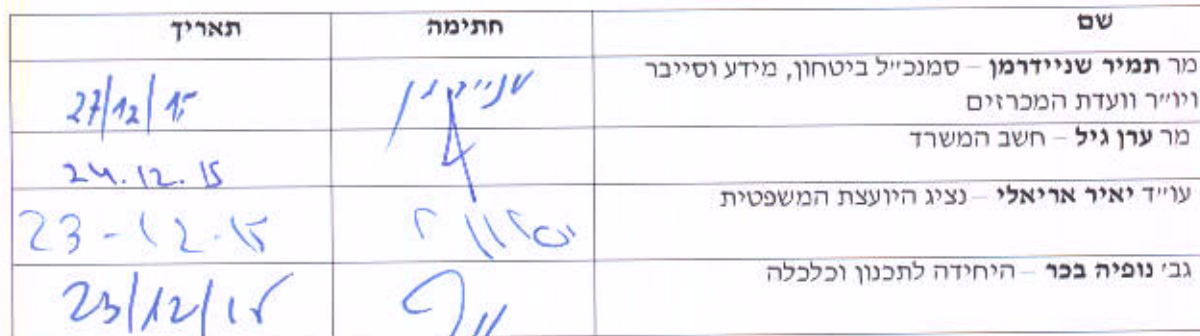 שם חתימה תאריך
מר תמיר שניידרמן – סמנכ״ל ביטחון, מידע וסייבר
ויו״ר וועדת המכרזים 27/12/15
מר ערן גיל – חשב המשרד 24.12.15
עו״ד יאיר אריאלי – נציג היועצת המשפטית 23-12-15
גבי נופיה בכר – היחידה לתכנון וכלכלה 23/12/15